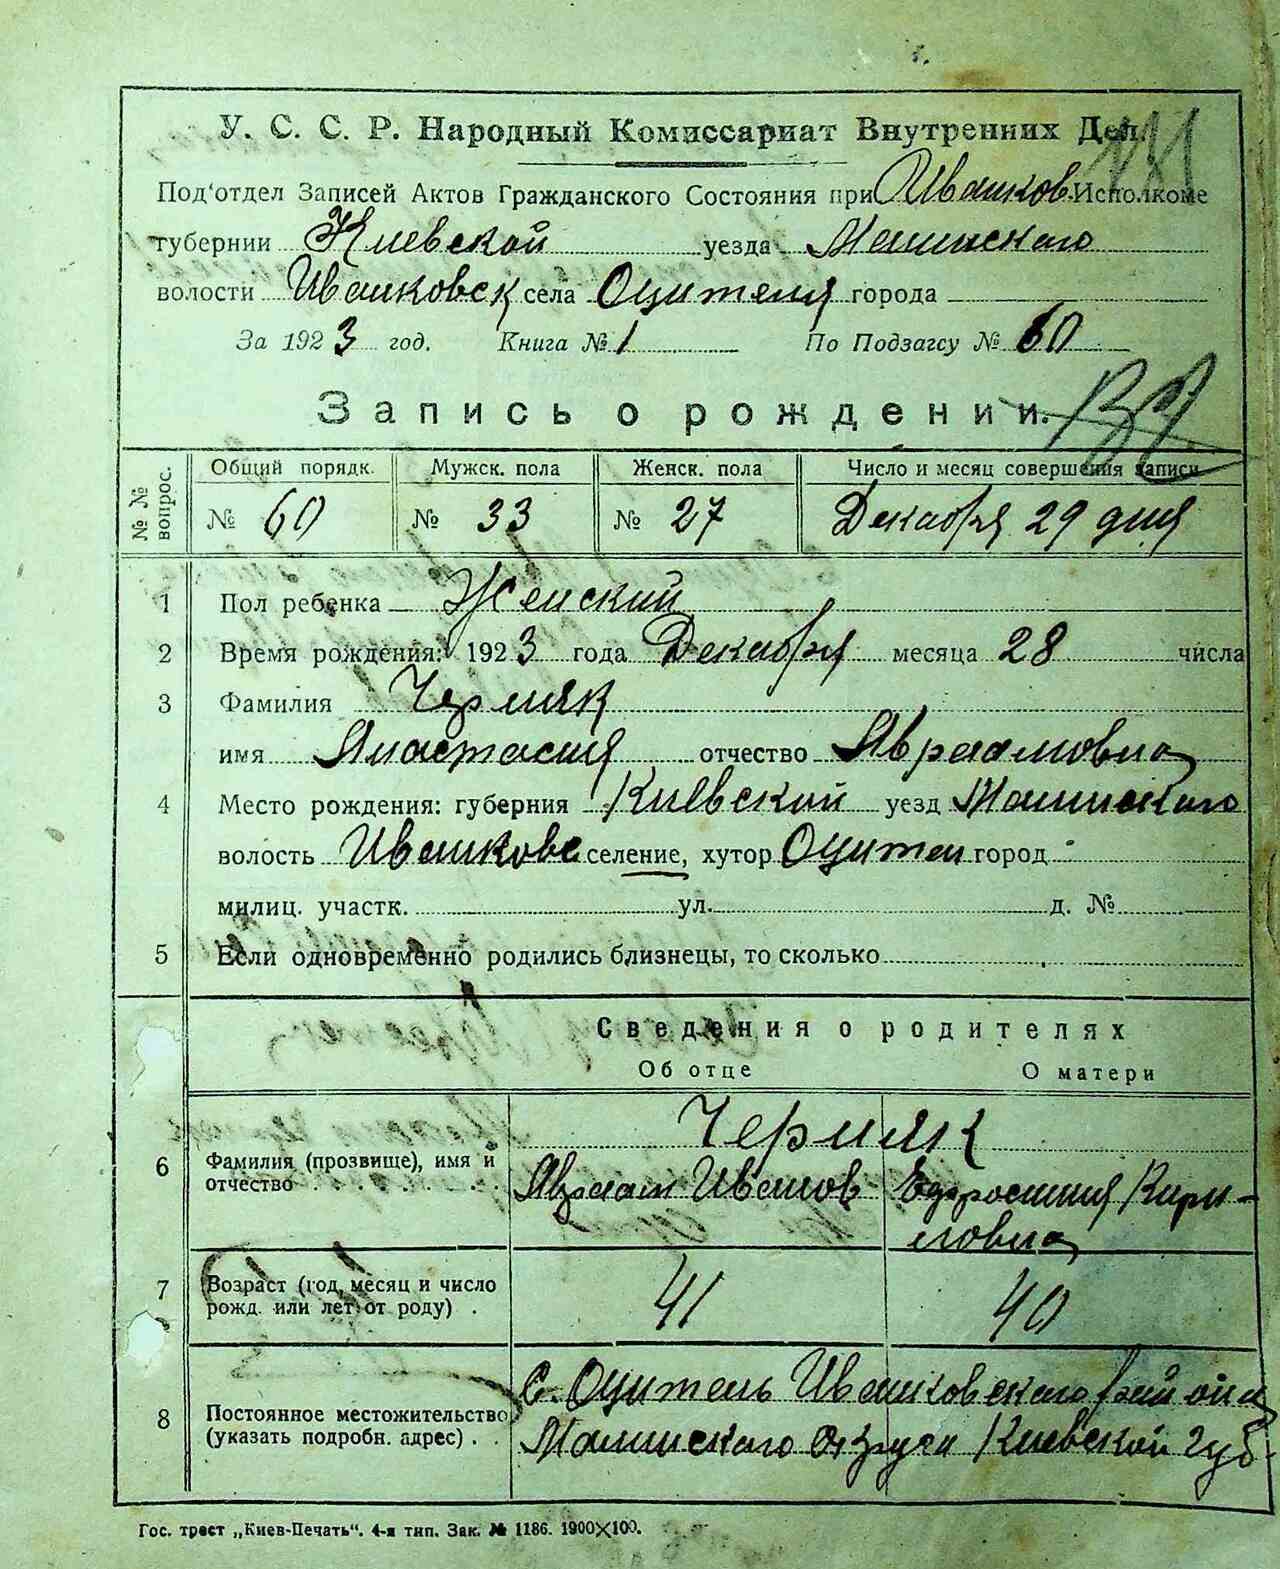 У. С. С. Р. Народный Комиссариат Внутренних Дел.
Под'отдел Записей Актов Гражданского Состояния при Иванков. Исполкоме
губернии Киевской уезда Малинского
волости Иванковск села Оцителя города
За 1923 год. Книга № 1 По Подзагсу № 60
Запись о рождении.
№ № вопрос. Общий порядк. Мужск. пола Женск. пола Число и месяц совершения записи
№ 60 № 33 № 27 Декабря 29 дня
1 Пол ребенка Женский
2 Время рождения: 1923 года Декабря месяца 28 числа
3 Фамилия Черняк
имя Анастасия отчество Авраамовна
4 Место рождения: губерния Киевской уезд Малинского
волость Иванковс селение, хутор Оцител город
милиц. участк. ул. д. №
5 Если одновременно родились близнецы, то сколько
Сведения о родителях
Об отце О матери
Черняк
6 Фамилия (прозвище), имя и
отчество Авраам Иванов Ефросиния Кири-
ловна
7 Возраст (год, месяц и число
рожд. или лет от роду) . 41 40
С. Оцитель Иванковского района
8 Постоянное местожительство
(указать подробн. адрес) . . Малинского округа Киевской губ.
Гос. трест „Киев-Печать“. 4-я тип. Зак. № 1186. 1900×100.